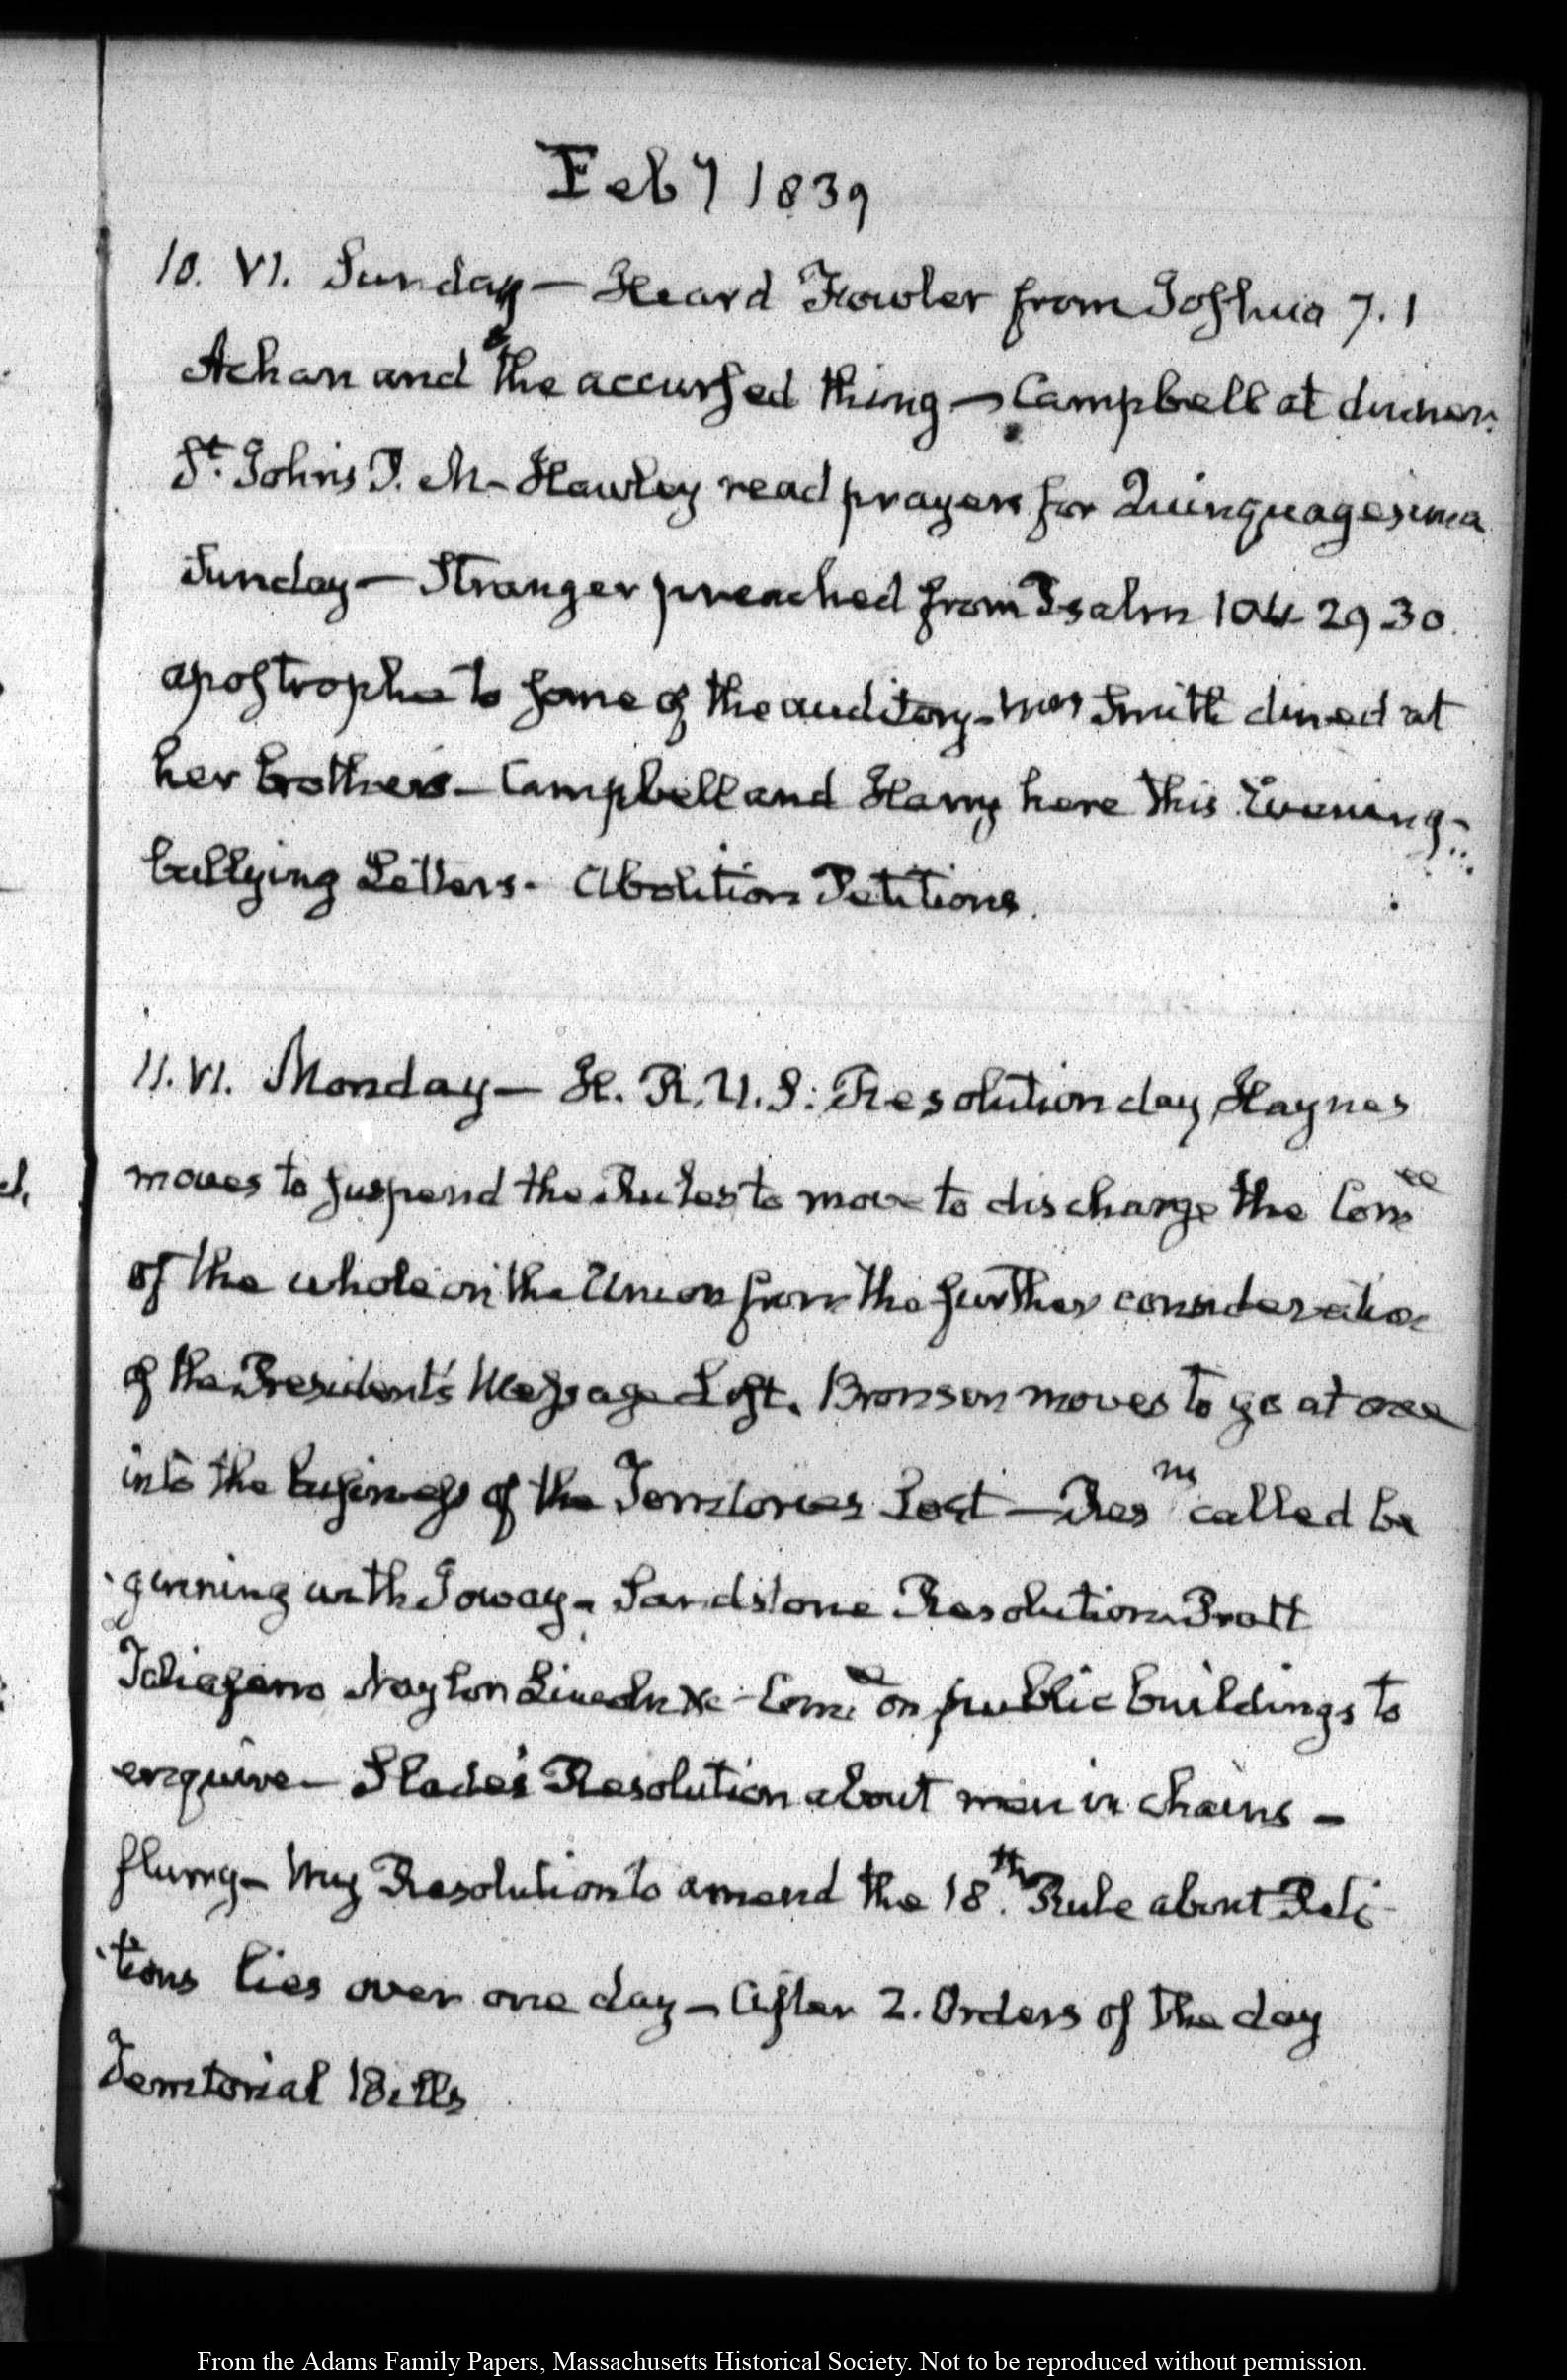 Feby 1839
10. VI. Sunday — Heard Fowler from Joshua 7. 1
Achan and the accursed thing — Campbell at dinner.
St. Johns P. M. Hawley read prayers for Quinquagesima
Sunday — Stranger preached from Psalm 104 29 30.
apostrophe to some of the auditory — Mrs Smith dined at
her brothers — Campbell and Harry here this Evening —
bullying Letters — Abolition Petitions.
11. VI. Monday — H. R. U. S: Resolution day Haynes
moves to suspend the Rules to move to discharge the Comee
of the whole on the Union from the further consideration
of the President's Message Lost. Bronson moves to go at once
into the business of the Territories Lost — Resns called be
ginning with Ioway — Sandstone Resolution Pratt
Taliaferro Naylor Lincoln &c — Comee on public buildings to
enquire — Slade's Resolution about men in chains —
flurry — My Resolution to amend the 18th. Rule about Peti-
tions lies over one day — After 2. Orders of the day
Territorial Bills
From the Adams Family Papers, Massachusetts Historical Society. Not to be reproduced without permission.